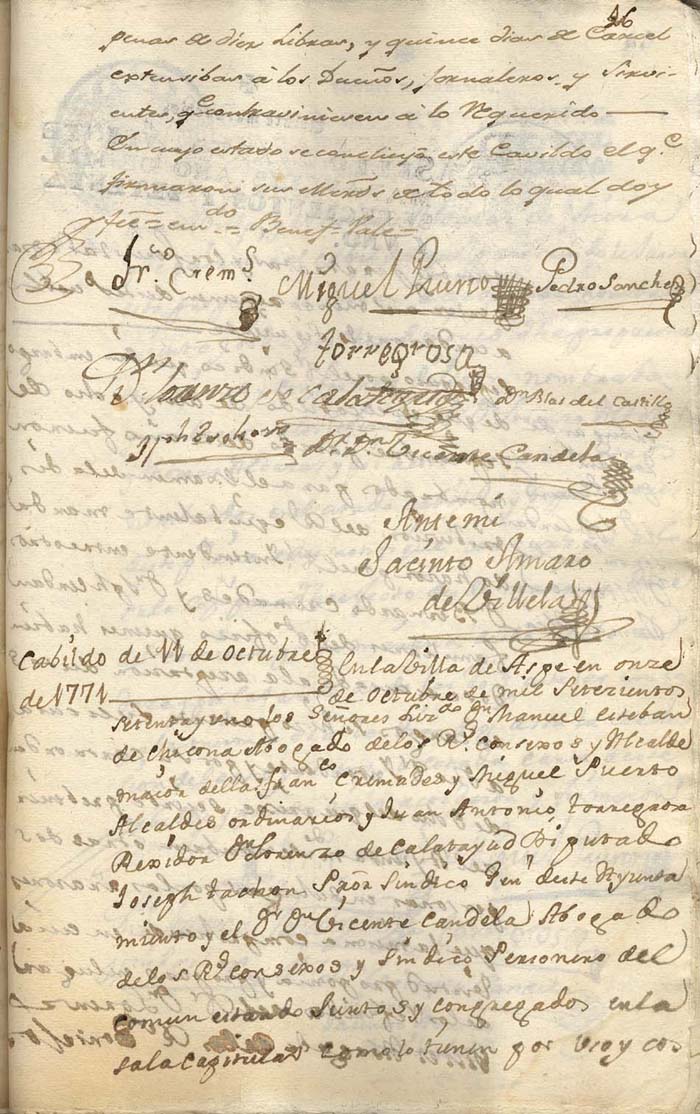 26
penas de diez Libras, y quince dias de Carcel
extensibas à los Dueños, Jornaleros y Sirvi-
entes, qe contraviniesen à lo Requerido
En cuyo estado se concluyó este Cavildo el qe
firmaron sus Mrds de todo lo qual doy
fee= Benef. Vale=
Frco Cremes
Miguel Puerto
Pedro Sanchez
Torregrosa
Dn Lorenzo de Calatayud
Dn Blas del Castillo
Dr Dn Vicente Candela
Antemi
Jacinto Amaro
de Villela
Cabildo de 11 de Octubre
de 1771
En la Villa de Aspe en onze
de Octubre de mil Setezientos
Setenta y uno los Señores Lizdo Dn Manuel Esteban
de Chicona Abogado de los Rs. Consexos y Alcalde
maior della Franco Cremades y Miguel Puerto
Alcaldes ordinarios y Juan Antonio Torregrosa
Rexidor Dn Lorenzo de Calatayud Diputado
Joseph Pror Sindico Gen deste Ayunta
miento y el Dr Dn Vicente Candela Abogado
de los Rs consexos y Sindico Personero del
Comun estando Juntos y congregados en la
sala Capitular como lo tienen por uso y cos